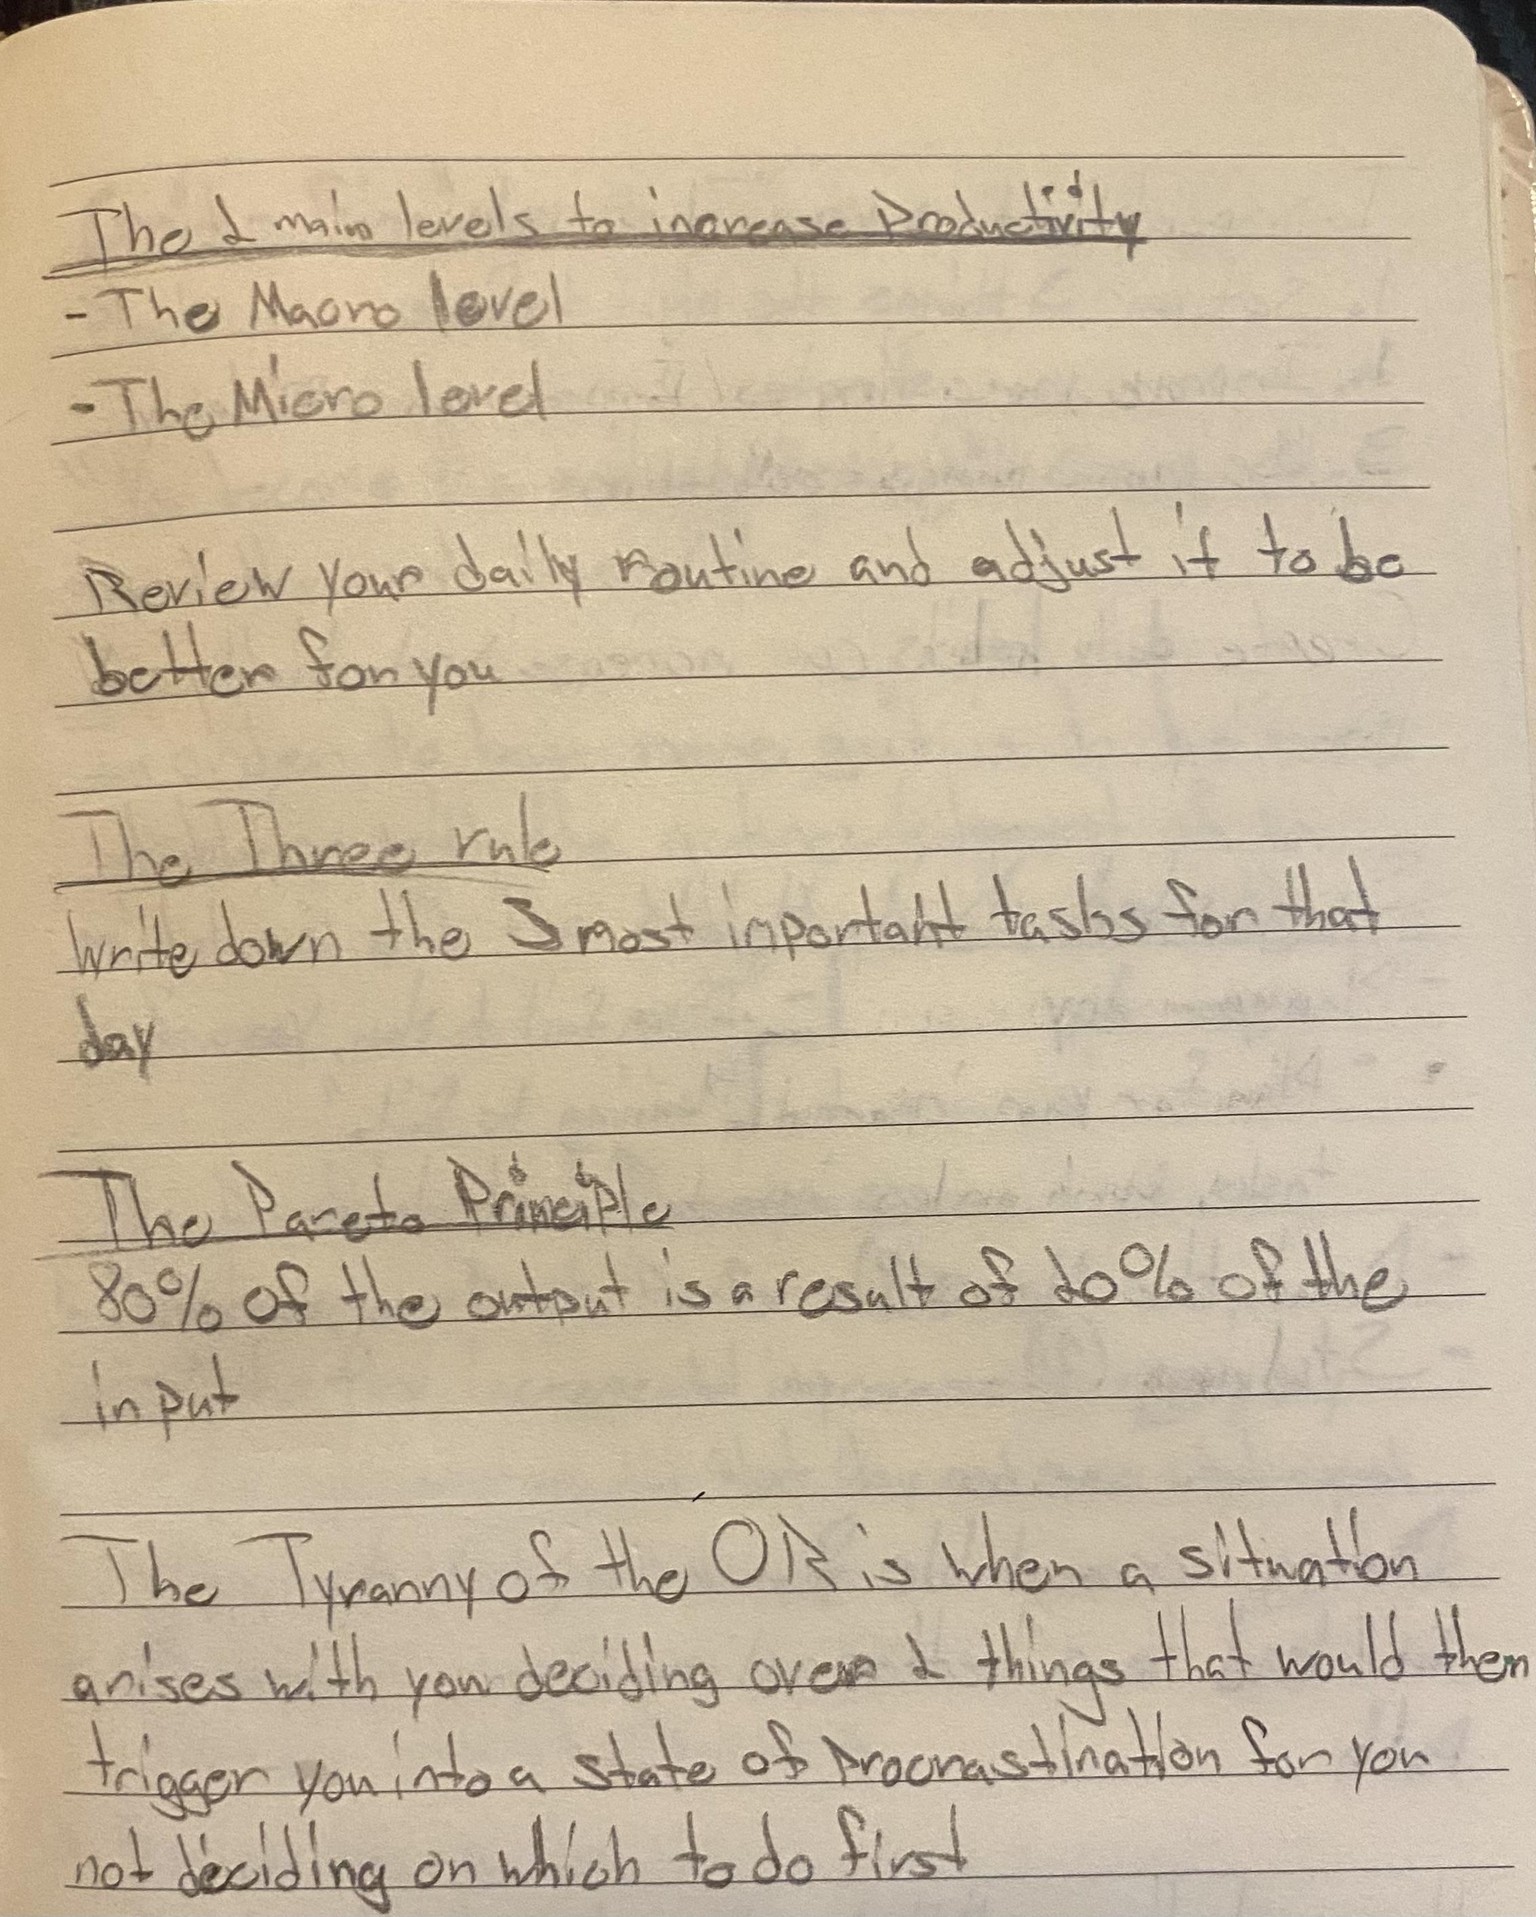 The 2 main levels to increase Productivity
- The Macro level
- The Micro level
Review your daily routine and adjust it to be
better for you
The Three rule
Write down the 3 most important tasks for that
day
The Pareto Principle
80% of the output is a result of 20% of the
input
The Tyranny of the OR is when a situation
arises with you deciding over 2 things that would then
trigger you into a state of procrastination for you
not deciding on which to do first